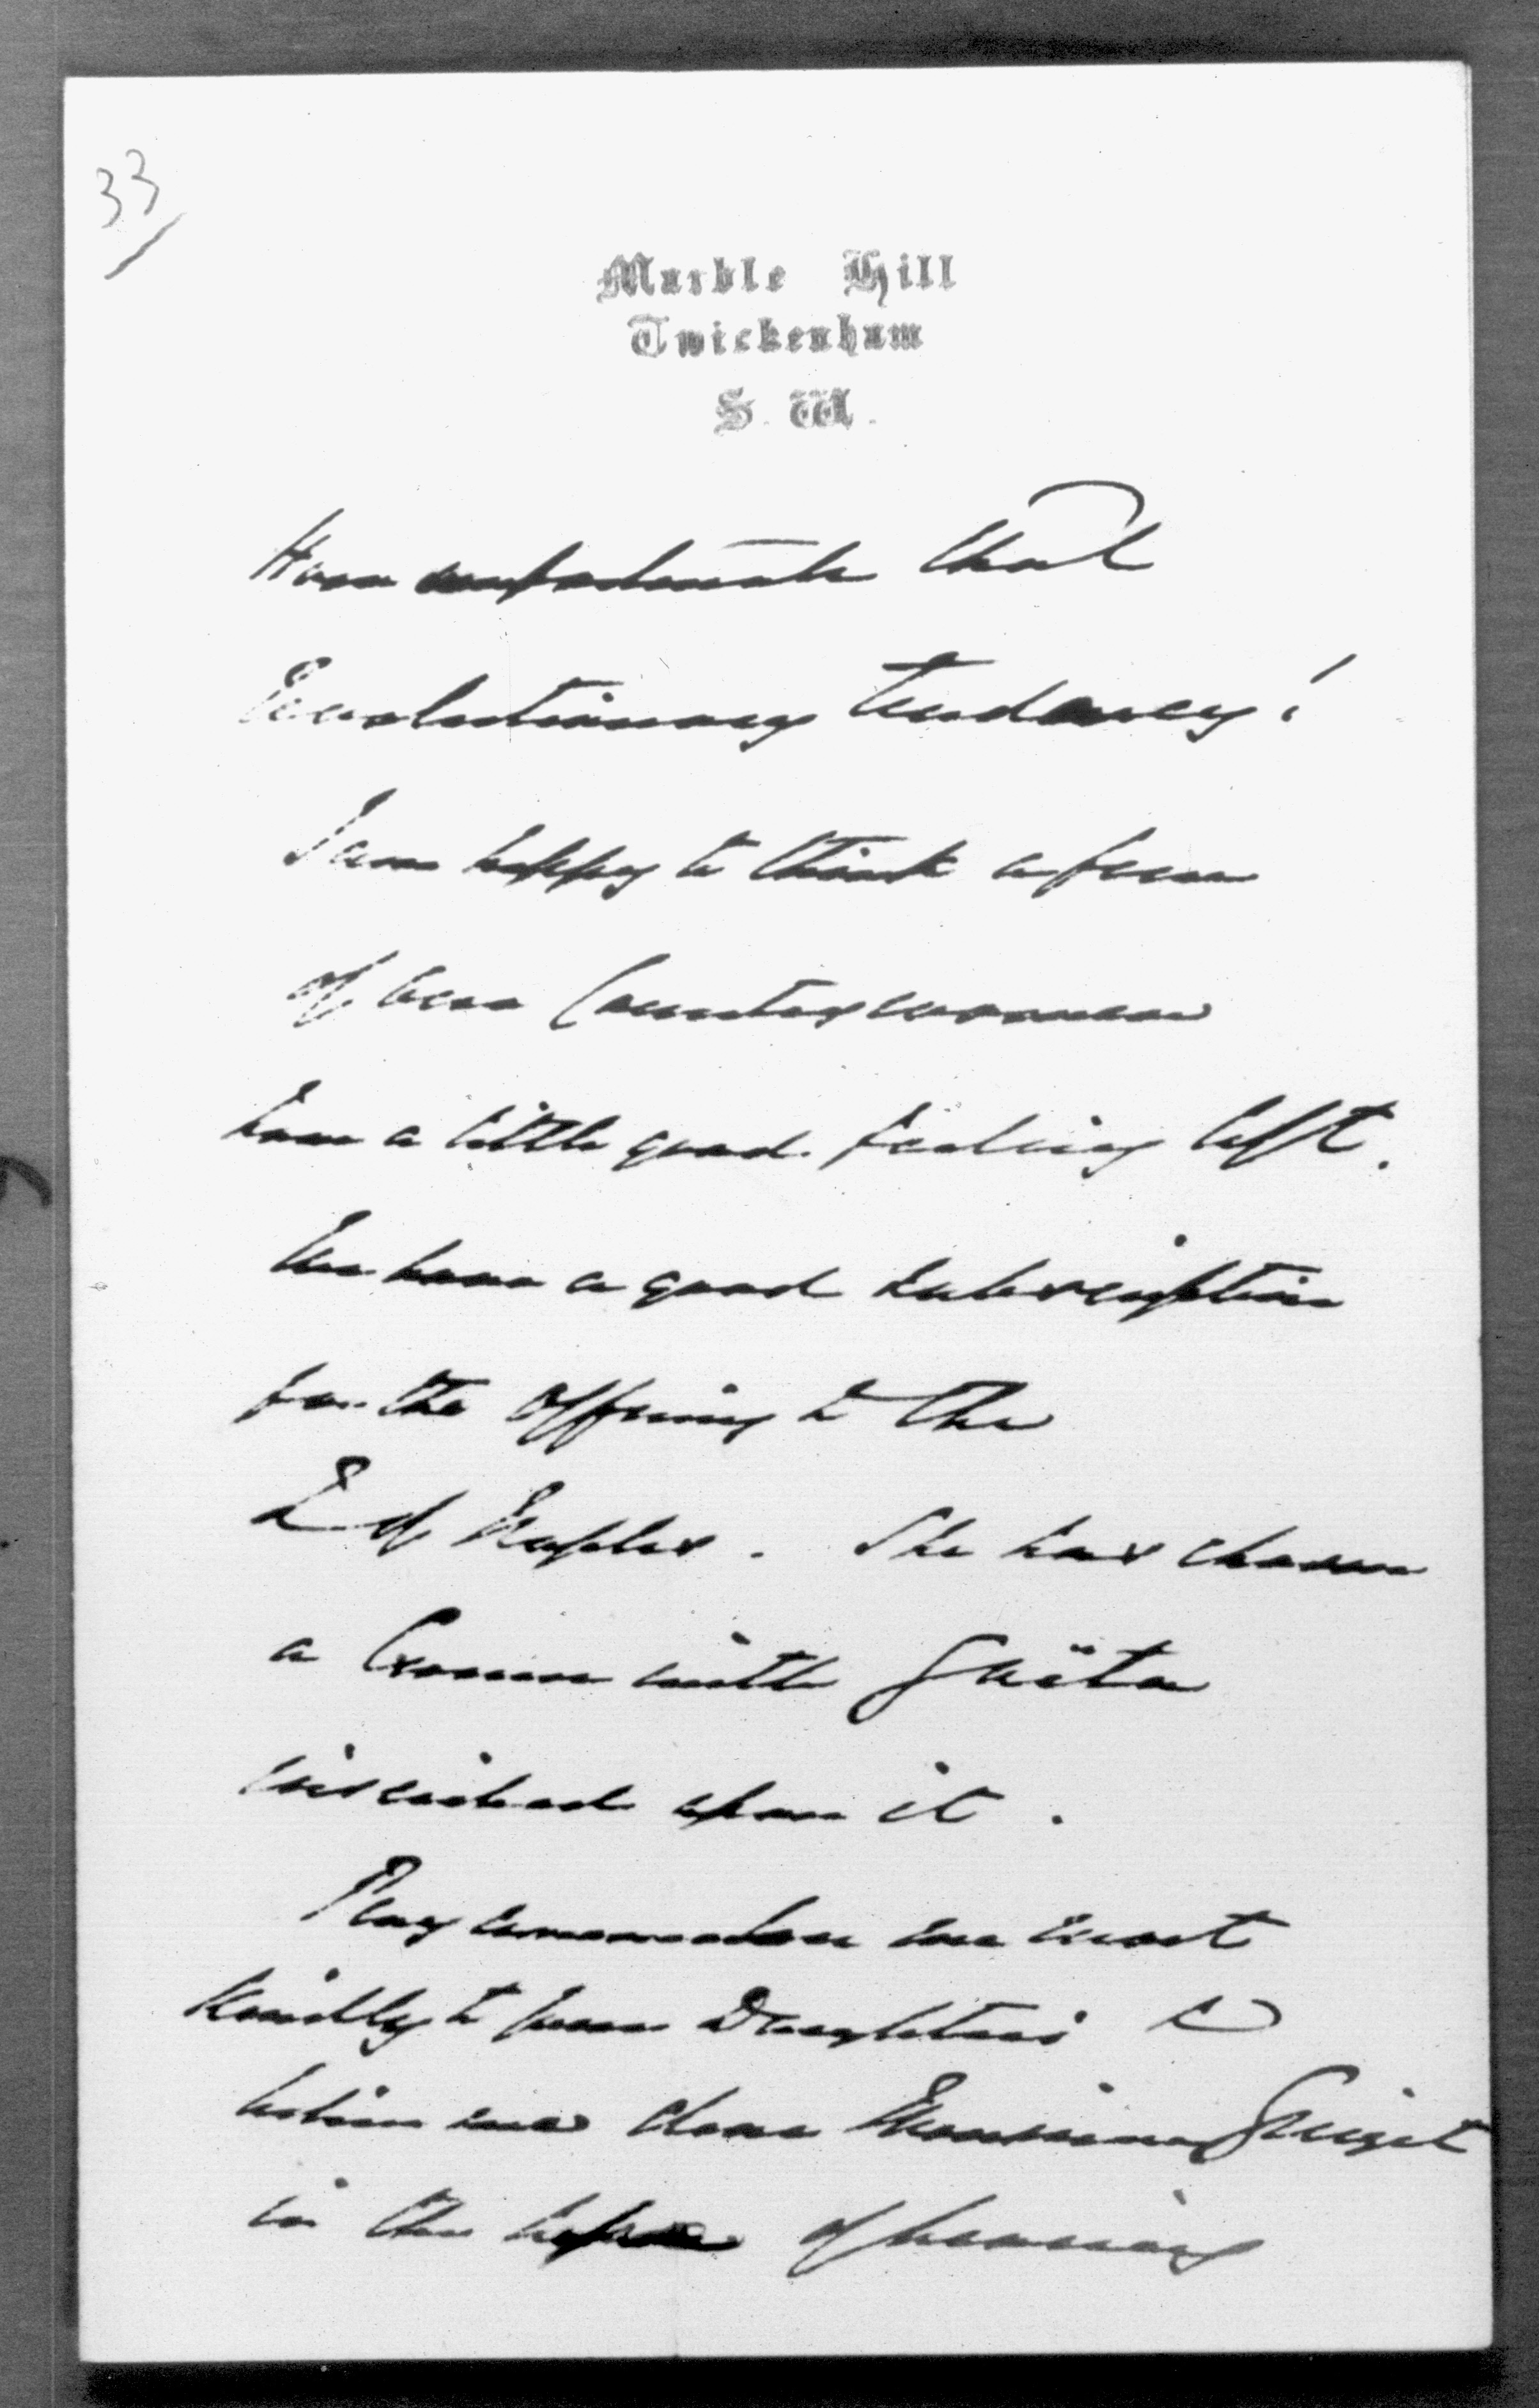 33
Marble Hill
Twickenham
S. W.
How unfortunate that
Revolutionary tendency!
I am happy to think a few
of her Countrywomen
have a little good feeling left.
We have a good subscription
for the offering to the
Q of Naples. She has chosen
a Crown with Gaëta
inscribed upon it.
Pray remember me most
kindly to your Daughters &
believe me dear Monsieur Guizot
in the hopes of hearing